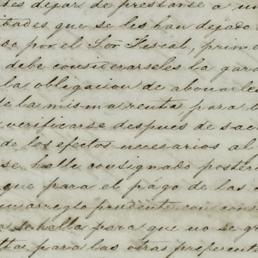 tes dejar de prestarse a un
tades que se les han dejado
so por el Sor Fiscal, prime
debe considerarseles la gar
la obligacion de abonarles
de la misma renta, para lo
verificarse despues de sac
de los efectos necesarios al
se halle consignado poster
que para el pago de las
un arreglo prudente con cons
se halla para que no se gr
tas para las otras preferent